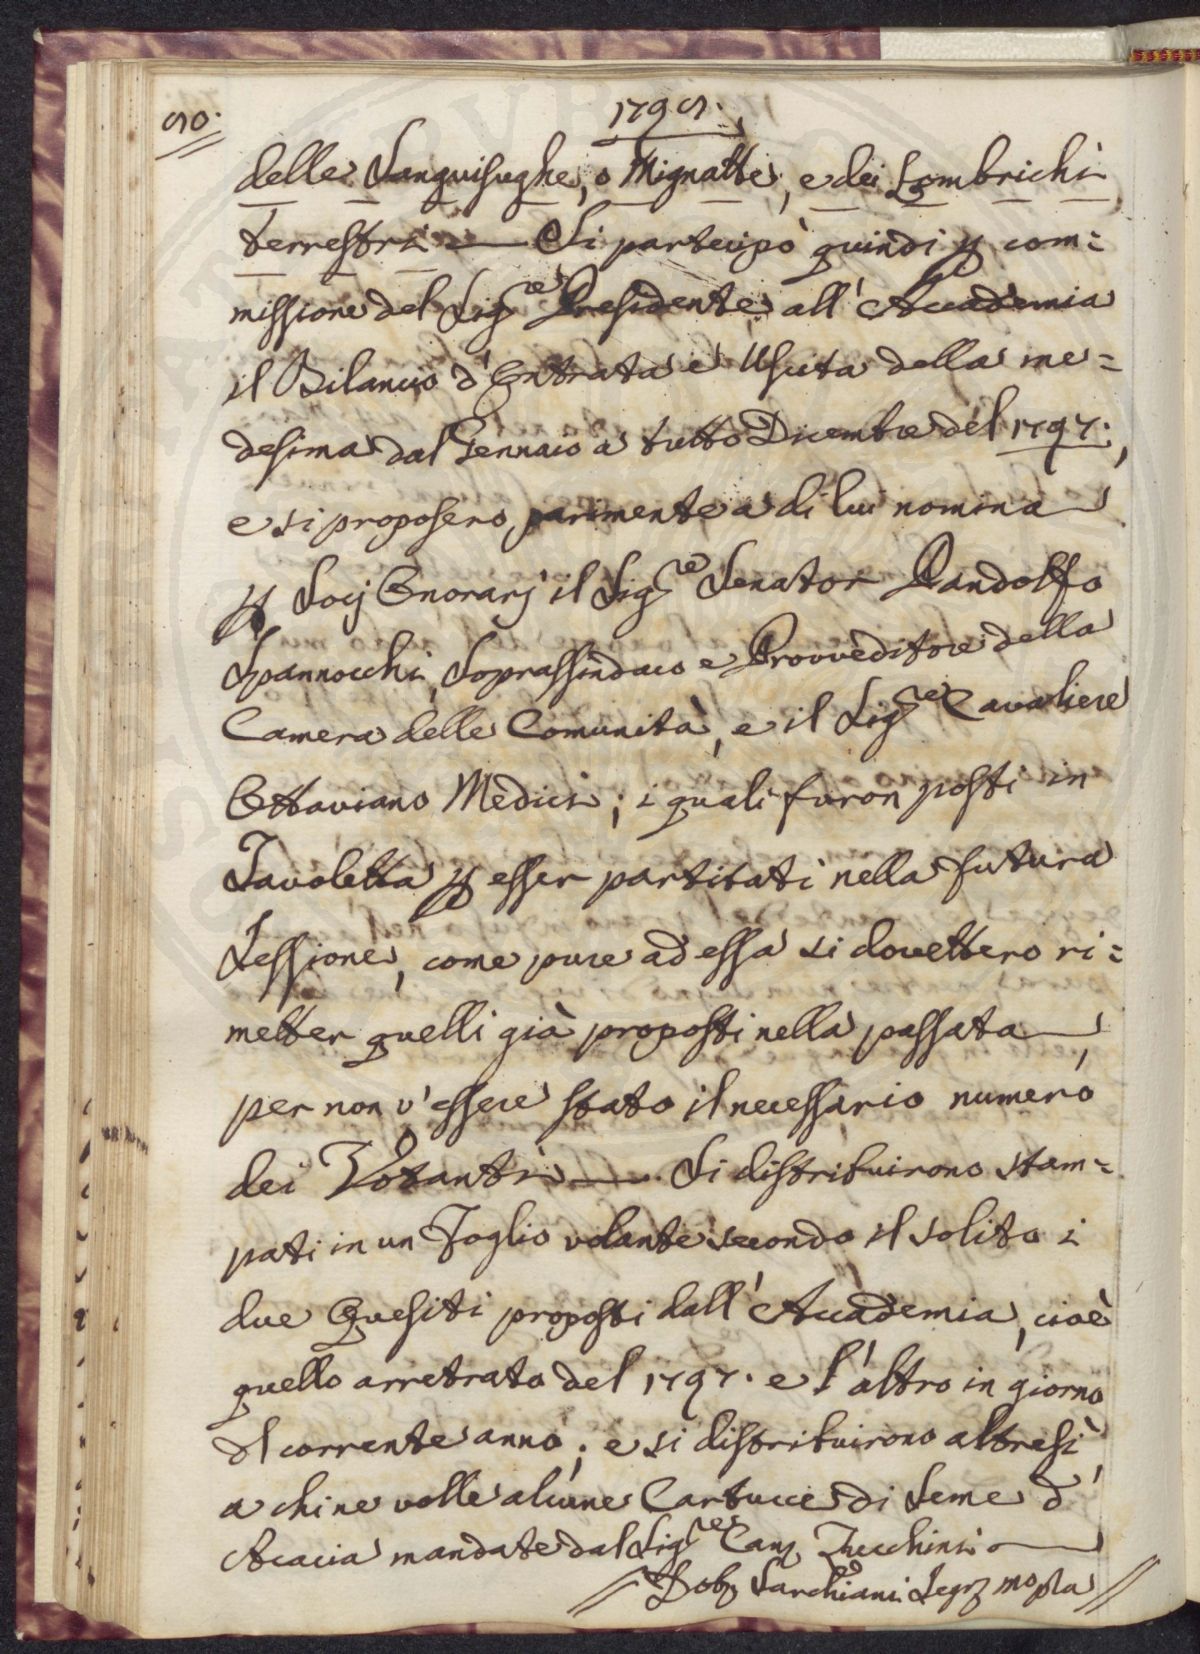 90.
1798.
delle Sanguisughe, o Mignatte, e dei Lombrichi
terrestri — Si partecipò quindi p com=
missione del Sig.re Presidente all'Accademia
il Bilancio d'Entrata e Uscita della me=
desima dal Gennaio a tutto Dicembre del 1797.,
e si proposero parimente a di lui nomina
p Socj Onorarj il Sig.re Senator Pandolfo
Spannocchi, Soprassindaco e Provveditore della
Camera delle Comunità, e il Sig.re Cavaliere
Ottaviano Medici; i quali furon posti in
Tavoletta p esser partitati nella futura
Sessione, come pure ad essa si dovettero ri=
metter quelli già proposti nella passata,
per non v'essere stato il necessario numero
dei Votanti — Si distribuirono stam=
pati in un Foglio volante secondo il solito i
due Quesiti proposti dall'Accademia, cioè
quello arretrato del 1797. e l'altro in giorno
del corrente anno; e si distribuirono altresì
a chi ne volle alcune Cartucce di Seme d'
Acacia mandate dal Sig.re Can. Zucchini —
Sarchiani Segr